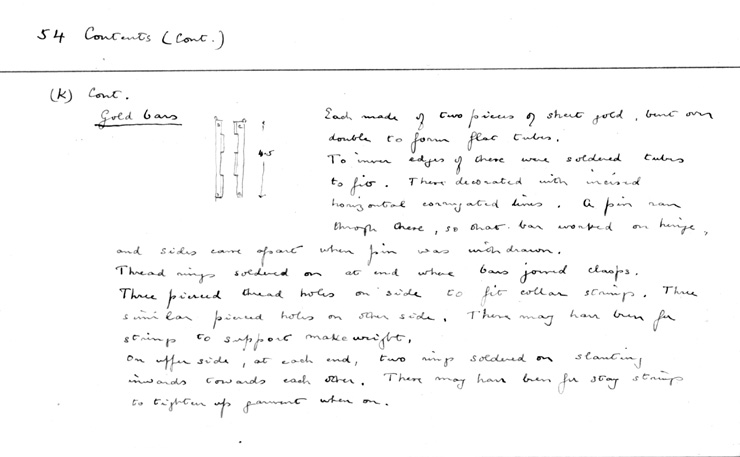 54 Contents (Cont.)
(K) Cont.
Gold bars
4.5
Each made of two pieces of sheet gold, bent over
double to form flat tubes.
To inner edges of these were soldered tubes
to fit. These decorated with incised
horizontal corrugated lines. A pin ran
through these, so that bar worked on hinge,
and sides came apart when pin was withdrawn.
Thread rings soldered on at end where bars joined clasps.
Three pierced thread holes on side to fit collar strings. Three
similar pierced holes on other side. These may have been for
strings to support makeweight.
On upper side, at each end, two rings soldered on slanting
inwards towards each other. These may have been for stay strings
to tighten up garment when on.